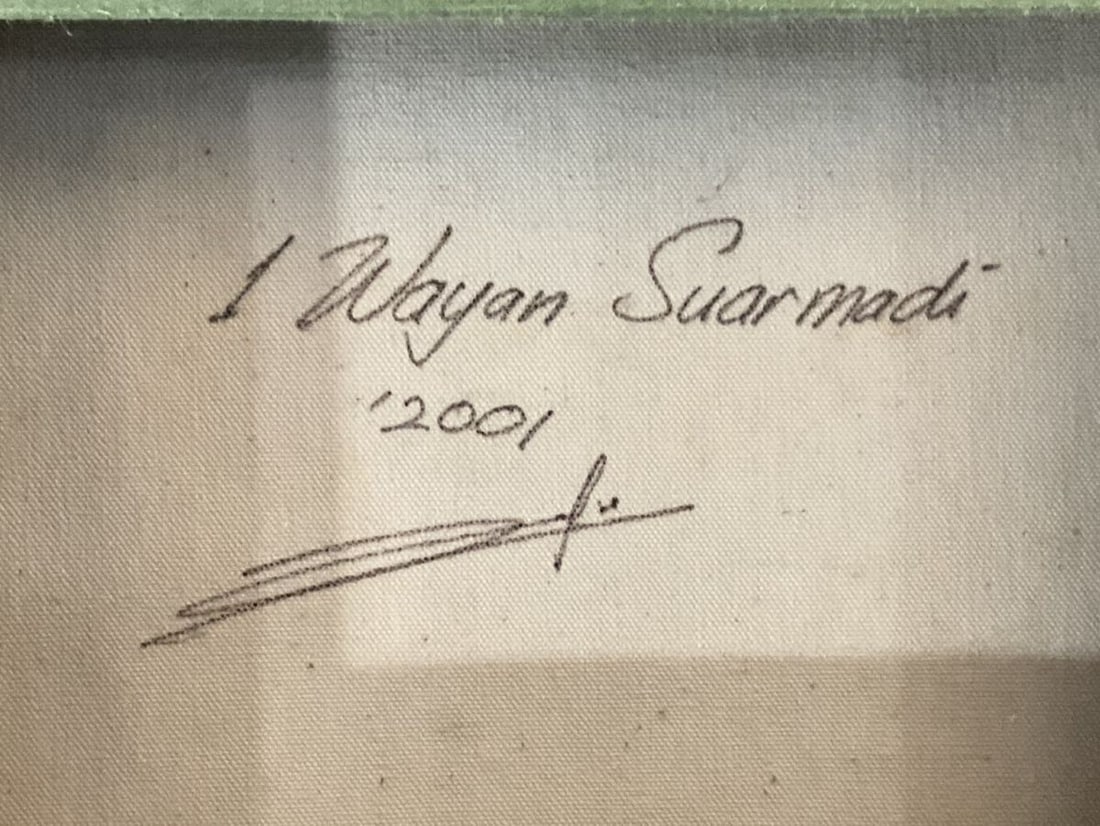 I Wayan Suarmadi
'2001